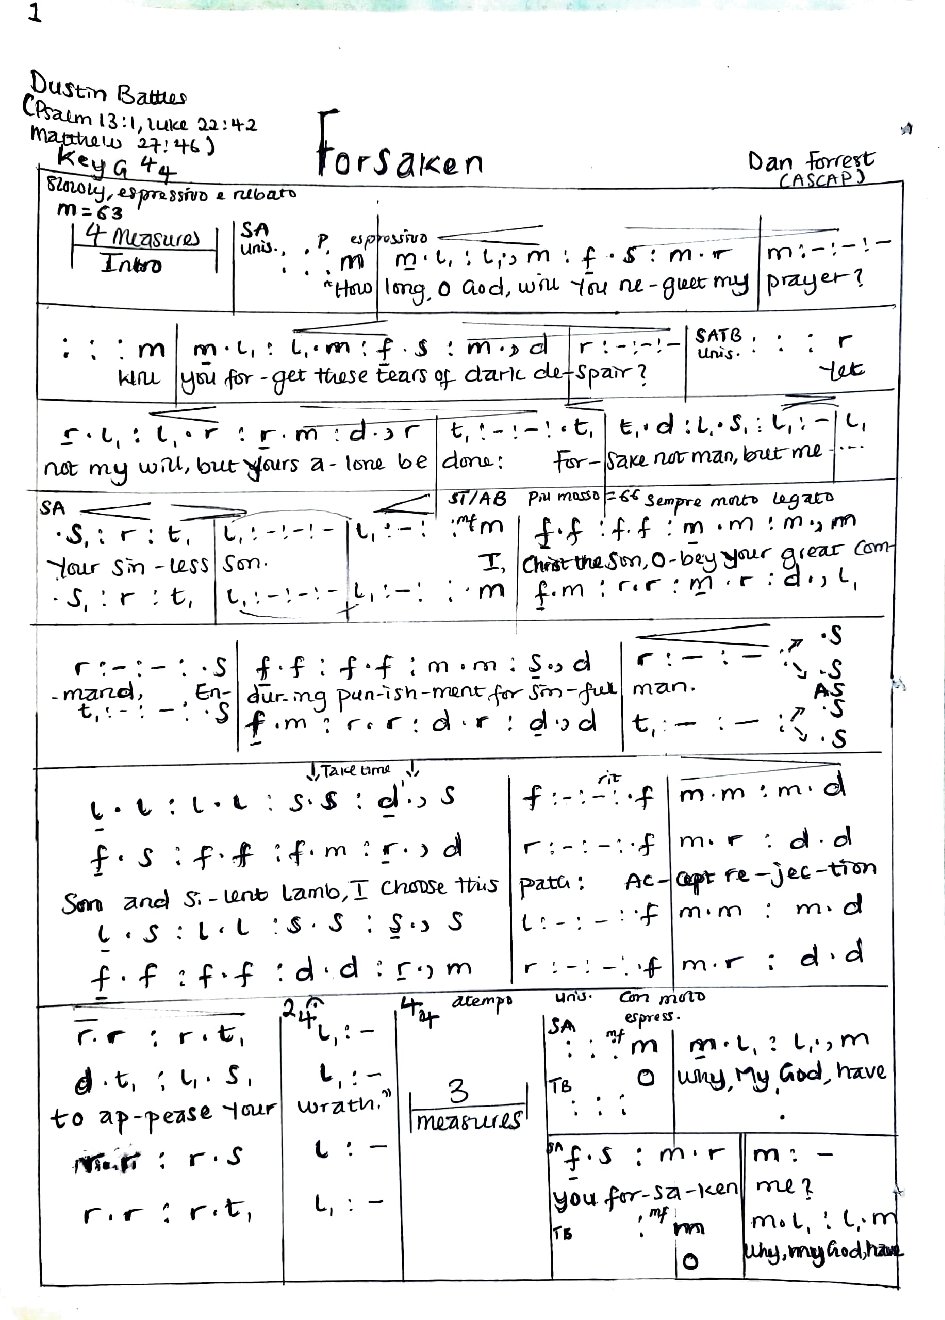 1
Dustin Battles
(Psalm 13:1, Luke 22:42
Matthew 27:46)
Key G 4/4
Forsaken
Dan Forrest
(ASCAP)
Slowly, espressivo e rubato
m=63
4 Measures
Intro
SA
Unis.
P espressivo
: . : . m | m . l, : l, ., m : f . s : m . r | m : - : - : -
"How long, O God, will You ne-glect my prayer?
: : : m | m . l, : l, . m : f . s : m . , d | r : - : - : -
Will you for-get these tears of dark de-spair?
SATB
Unis. : : : r
Let
r . l, : l, . r : r . m : d . , r | t, : - : - : . t, | t, . d : l, . s, : l, : - | l,
not my will, but yours a-lone be done: For-sake not man, but me ....
SA
. s, : r : t, | l, : - : - : - | l, : - :
ST/AB Piu mosso = 66 Sempre molto legato
: mf m | f . f : f . f : m . m : m . , m
Your sin-less Son. I, Christ the Son, O-bey your great com-
. s, : r : t, | l, : - : - : - | l, : - : : . m | f . m : r . r : m . r : d . , l,
r : - : - : . s | f . f : f . f : m . m : s . , d | r : - : - . s
. s
-mand, En-during pun-ish-ment for sin-ful man. AS
t, : - : - : . s | f . m : r . r : d . r : d . , d | t, : - : - . s
. s
↓ Take time ↓
l . l : l . l : s . s : d' . , s | f : - : - : . f | m . m : m . d
rit
f . s : f . f : f . m : r . , d | r : - : - : . f | m . r : d . d
Son and Si-lent Lamb, I choose this path: Ac-cept re-jec-tion
l . s : l . l : s . s : s . , s | l : - : - : . f | m . m : m . d
f . f : f . f : d . d : r . , m | r : - : - : . f | m . r : d . d
r . r : r . t, | 2/4 l, : - | 4/4 atempo
d . t, : l, . s, | l, : -
to ap-pease your wrath."
: r . s | l : -
r . r : r . t, | l, : -
3
measures
unis. con moto
espress.
SA
: : : mf m | m . l, : l, . , m
O why, My God, have
TB
: : :
SA f . s : m . r | m : -
you for-sa-ken me?
TB : mf m | m . l, : l, . m
O why, my God, have